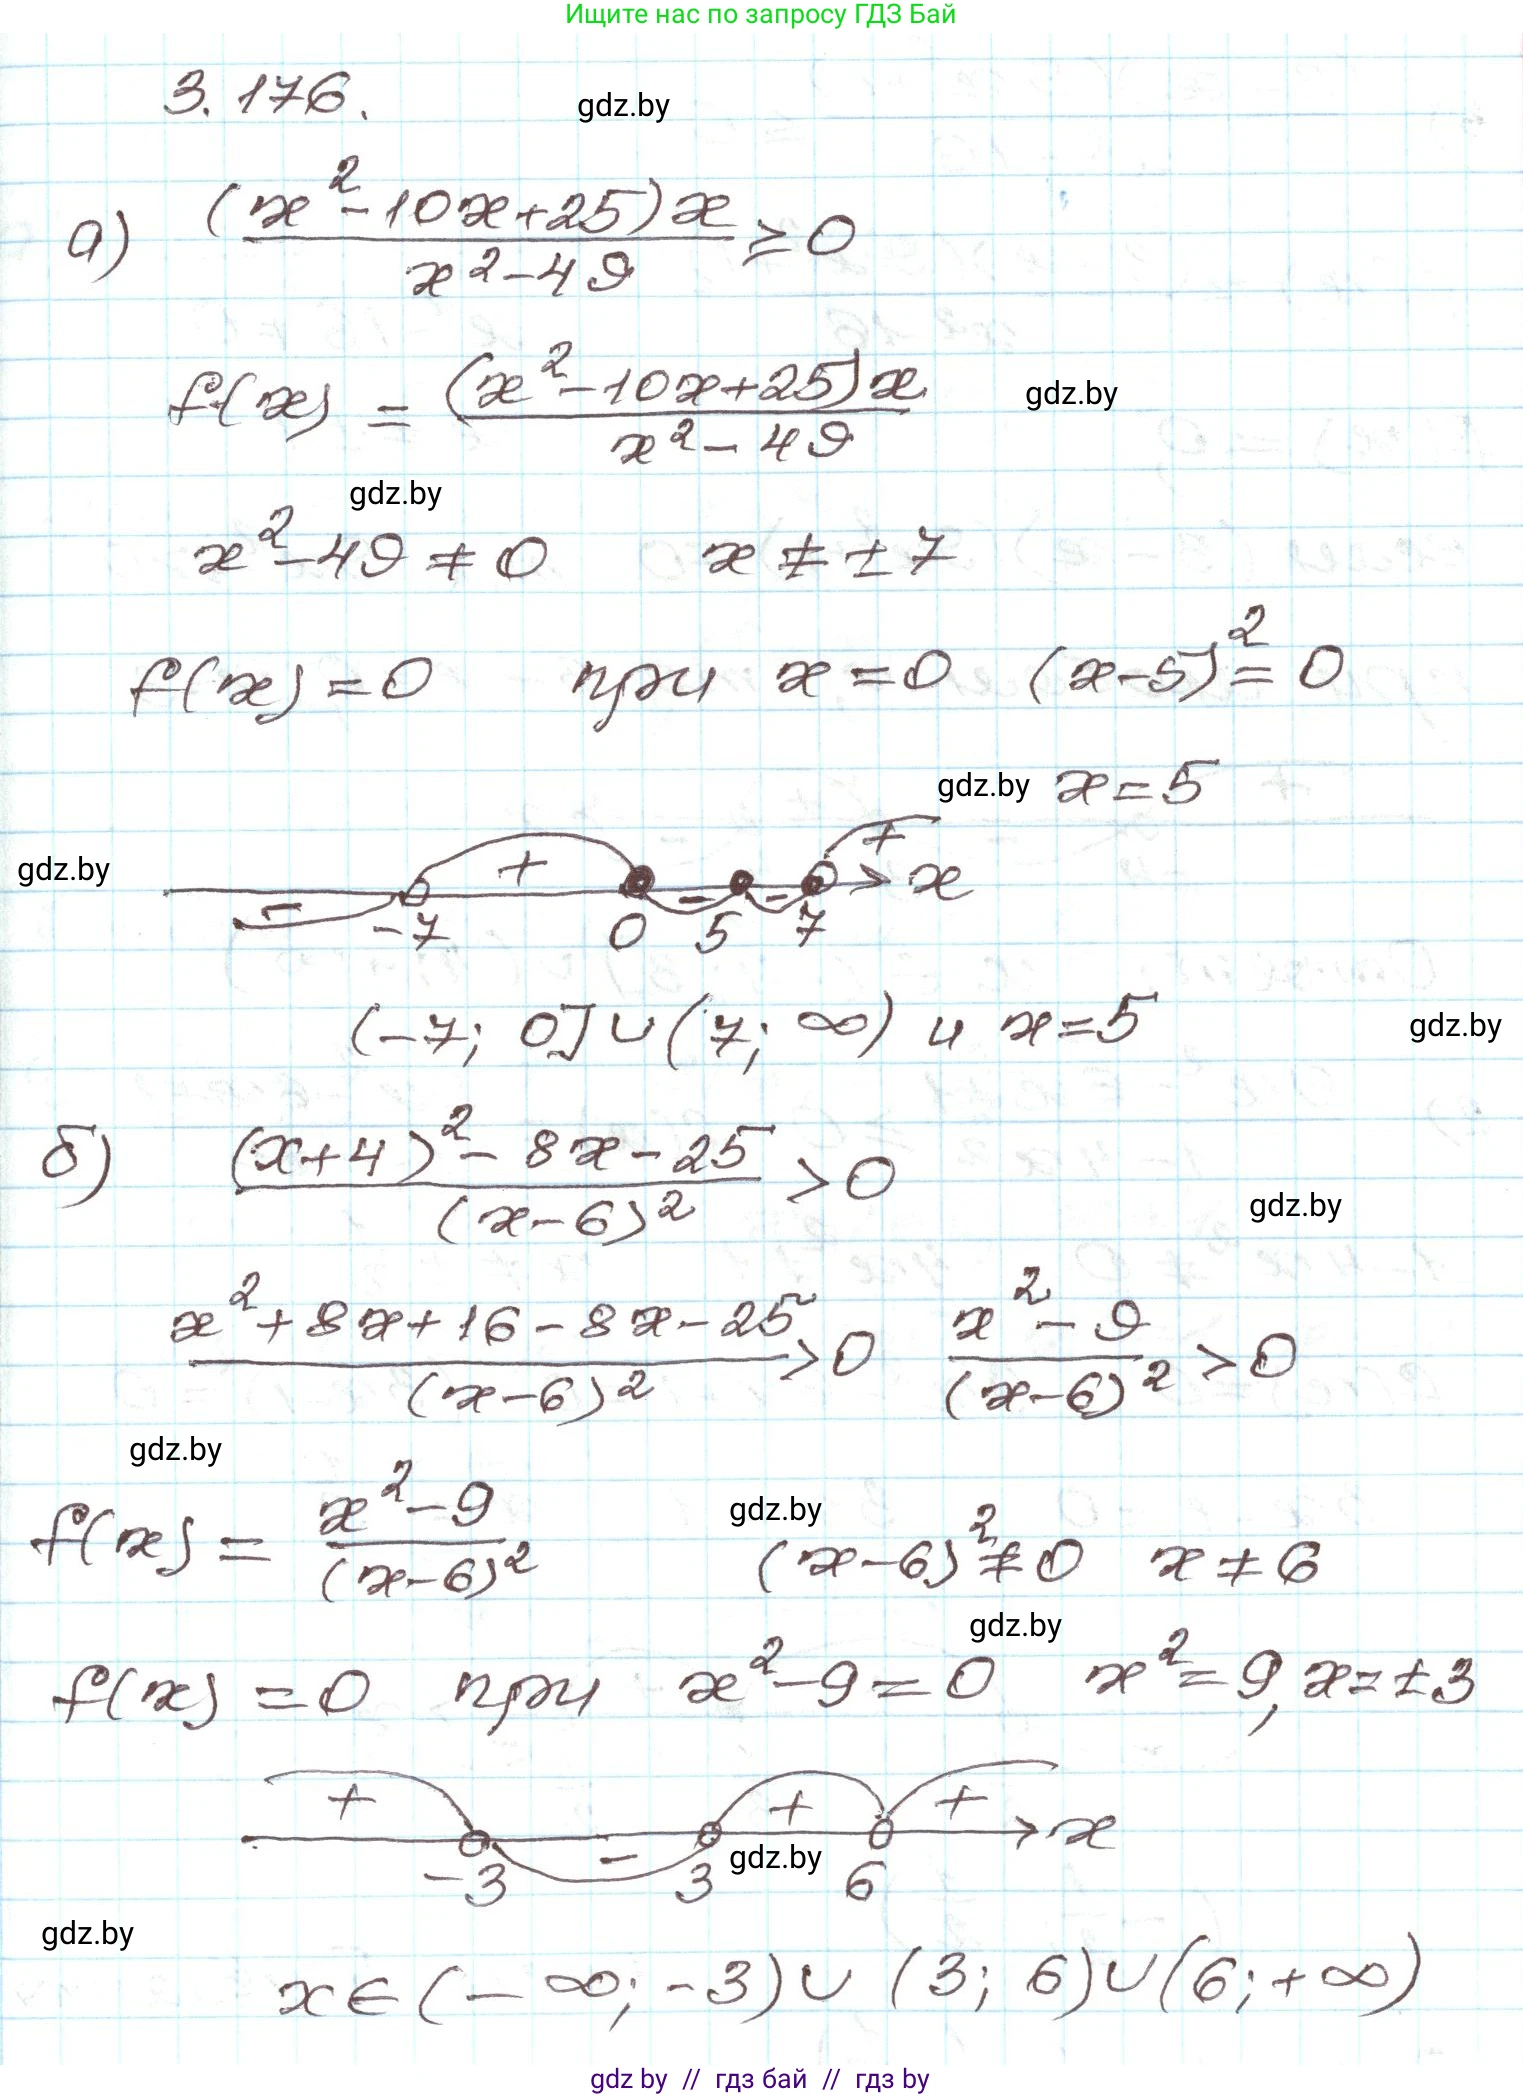 Ищите нас по запросу ГДЗ Бай
3.176.
gdz.by
а) (x² - 10x + 25)x / x² - 49 ≥ 0
f(x) = (x² - 10x + 25)x / x² - 49
gdz.by
gdz.by
x² - 49 ≠ 0 x ≠ ± 7
f(x) = 0 при x = 0 (x-5)² = 0
gdz.by x = 5
gdz.by
- + - - + x
-7 0 5 7
(-7; 0] ∪ (7; ∞) и x = 5
gdz.by
б) (x+4)² - 8x - 25 / (x-6)² > 0
gdz.by
x² + 8x + 16 - 8x - 25 / (x-6)² > 0 x² - 9 / (x-6)² > 0
gdz.by
f(x) = x² - 9 / (x-6)² (x-6)² ≠ 0 x ≠ 6
gdz.by
gdz.by
f(x) = 0 при x² - 9 = 0 x² = 9, x = ± 3
+ - + + x
-3 3 6
gdz.by
gdz.by
x ∈ (- ∞; -3) ∪ (3; 6) ∪ (6; + ∞)
gdz.by // гдз бай // гдз by